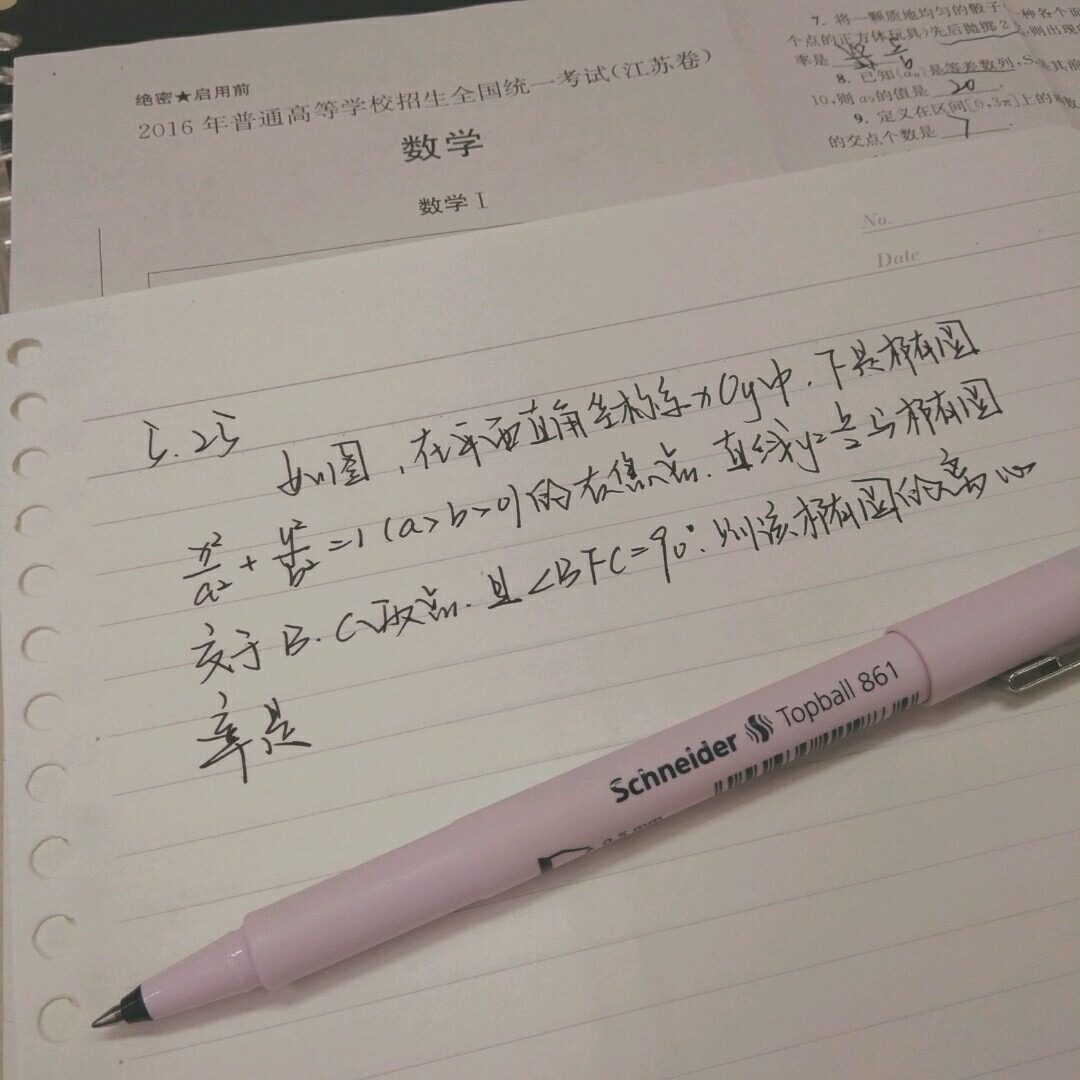 绝密★启用前
2016年普通高等学校招生全国统一考试(江苏卷)
数学
数学Ⅰ
7. 将一颗质地均匀的骰子(一种各个面
个点的正方体玩具)先后抛掷2 ,则出现
率是 5 6
8. 已知{aₙ}是等差数列,S 是其前
10,则a₉的值是 20 .
9. 定义在区间[0,3π]上的
的交点个数是 7 .
No.
Date
5.25
如图,在平面直角坐标系xOy中.F是椭圆
x²/a² + y²/b² =1 (a>b>0)的右焦点.直线y=b/2与椭圆
交于B.C两点.且∠BFC=90°.则该椭圆的离心
率是
Schneider Topball 861
0.5 mm